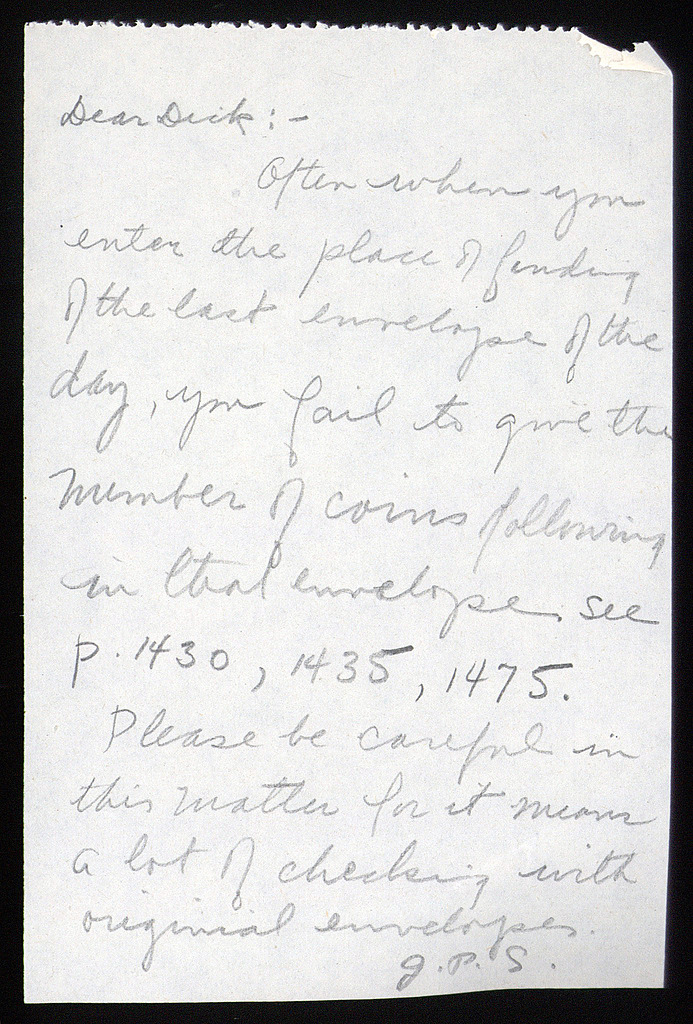 Dear Dick : -
Often when you
enter the place of finding
of the last envelope of the
day, you fail to give the
number of coins following
in that envelope. See
p. 1430, 1435, 1475.
Please be careful in
this matter for it means
a lot of checking with
originial envelopes.
J. P. S.